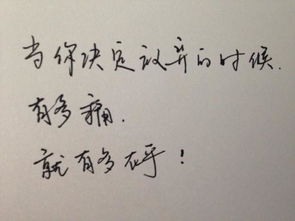 当你决定放弃的时候.
有多痛.
就有多在乎!